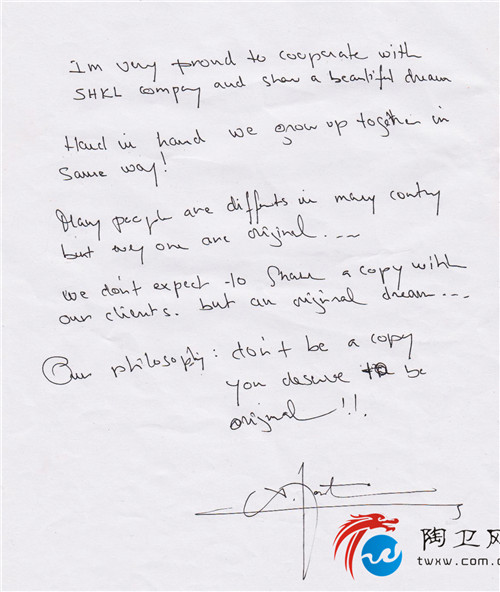 I'm very proud to cooperate with
SHKL company and share a beautiful dream
Hand in hand we grow up together in
same way!
Many people are differents in many contry
but evey one are original....
we don't expect to share a copy with
our clients. but an original dream...
Our philosophy: don't be a copy
you deserve to be
original!!!
陶卫网
twxw.com.c